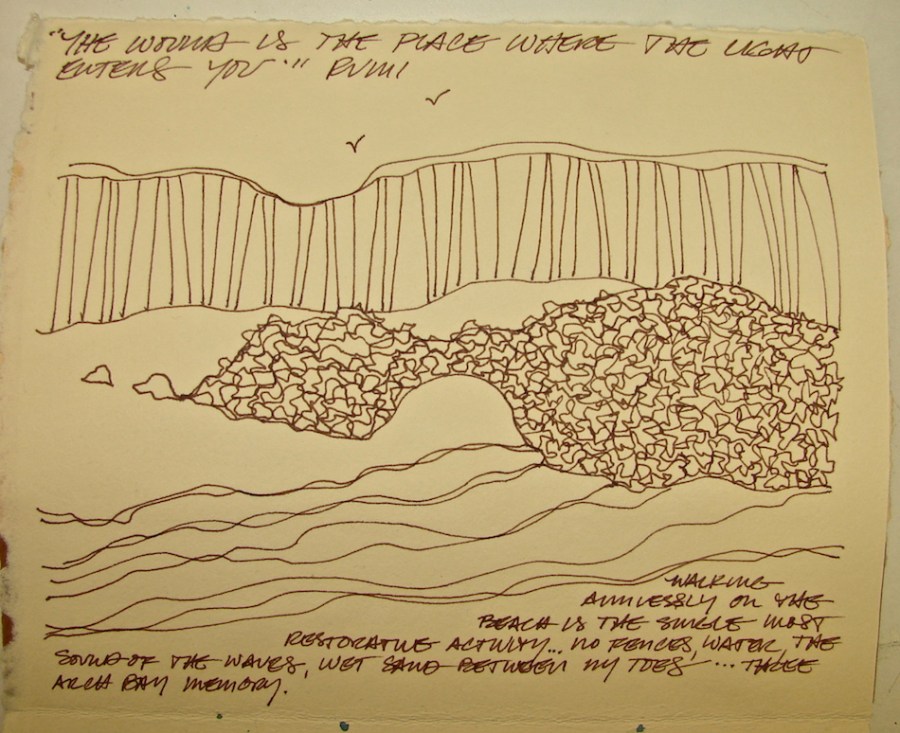 "THE WOUND IS THE PLACE WHERE THE LIGHT
ENTERS YOU." RUMI
WALKING
AIMLESSLY ON THE
BEACH IS THE SINGLE MOST
RESTORATIVE ACTIVITY... NO FENCES, WATER, THE
SOUND OF THE WAVES, WET SAND BETWEEN MY TOES ... THREE
ARCH BAY MEMORY.